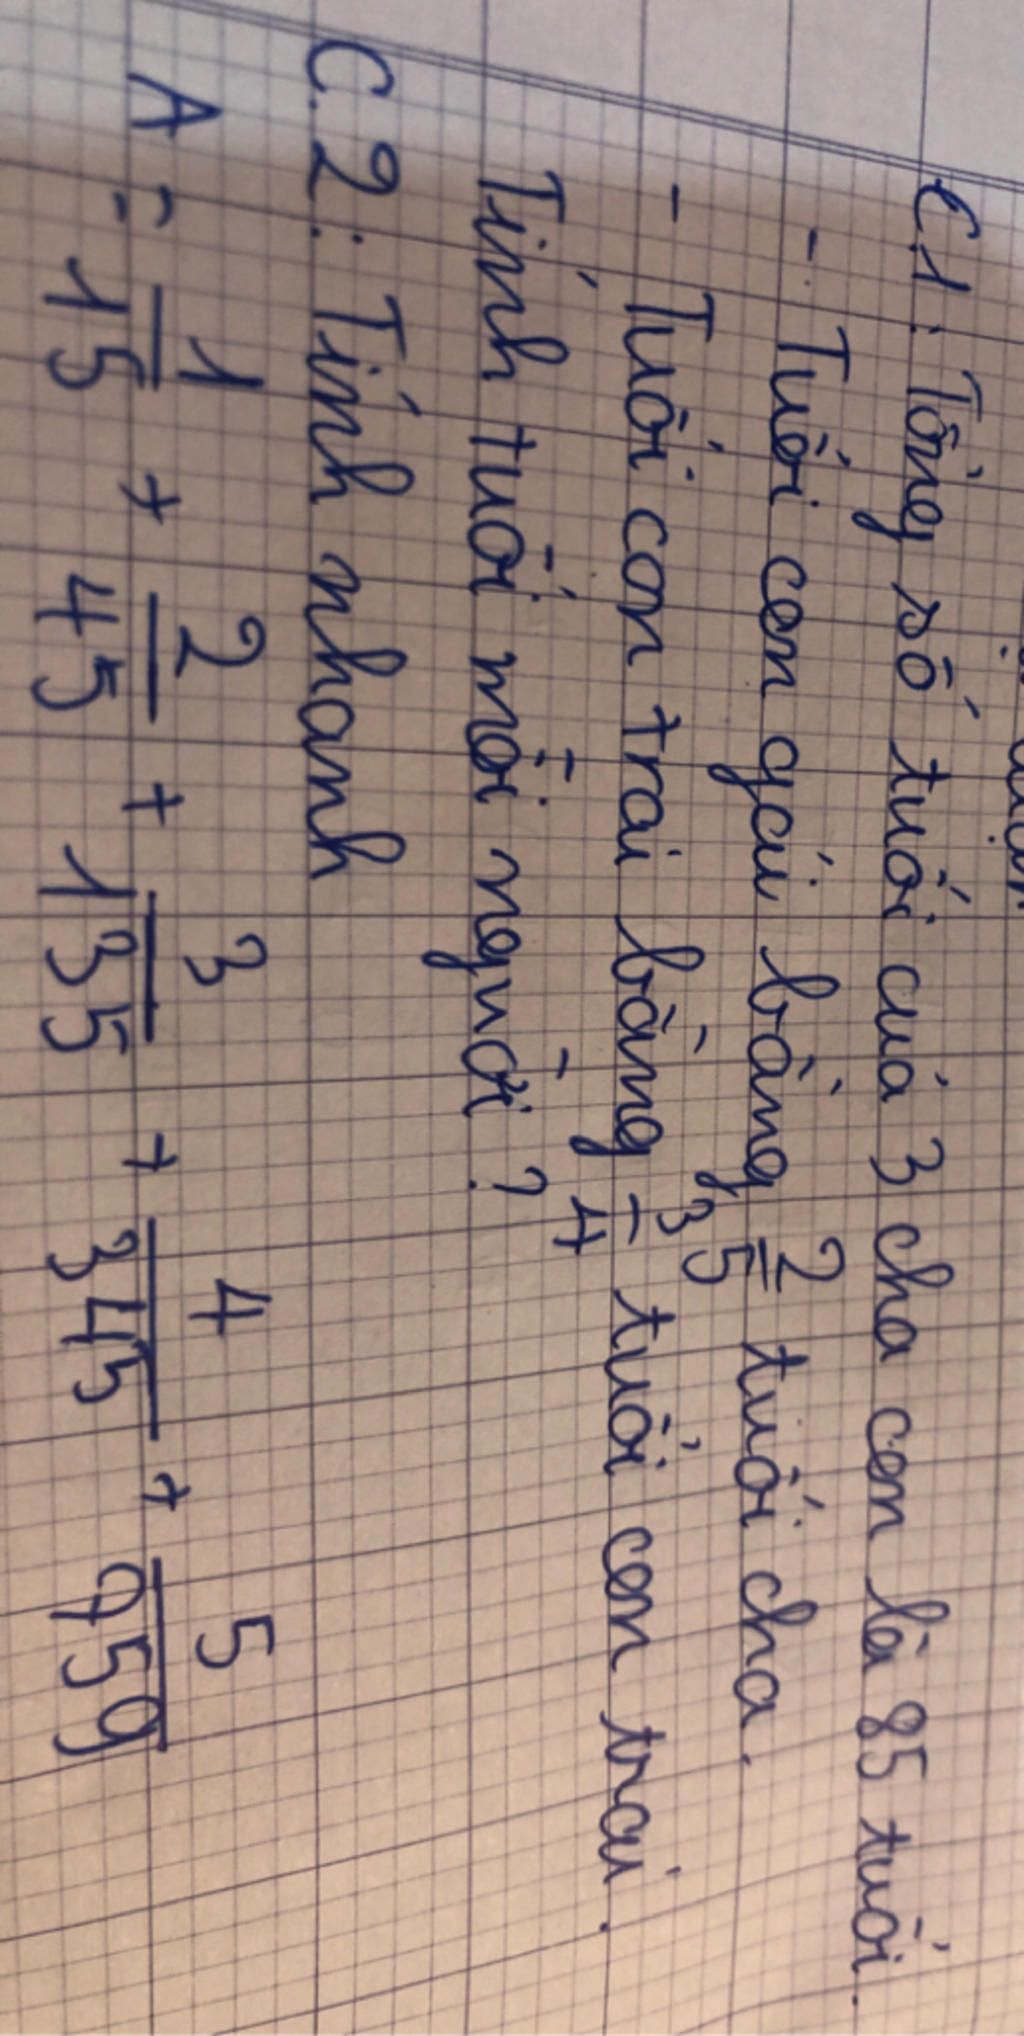 C.1: Tổng số tuổi của 3 cha con là 85 tuổi.
- Tuổi con gái bằng 2/5 tuổi cha.
- Tuổi con trai bằng 3/4 tuổi con trai.
Tính tuổi mỗi người?
C.2: Tính nhanh
A = 1/15 + 2/45 + 3/135 + 4/345 + 5/959